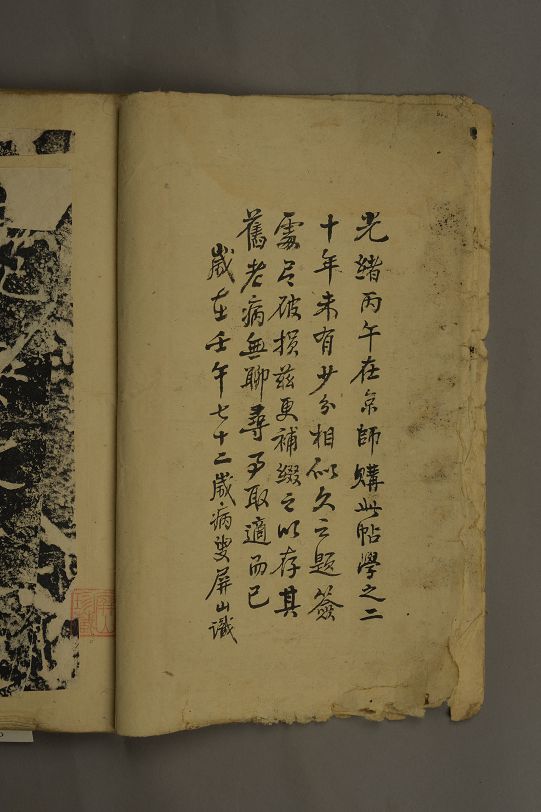 光緒丙午在京師購此帖學之二
十年未有少分相似久之題簽
處已破損茲更補綴之以存其
舊老病無聊尋事取適而已
歲在壬午七十二歲病叟屏山識